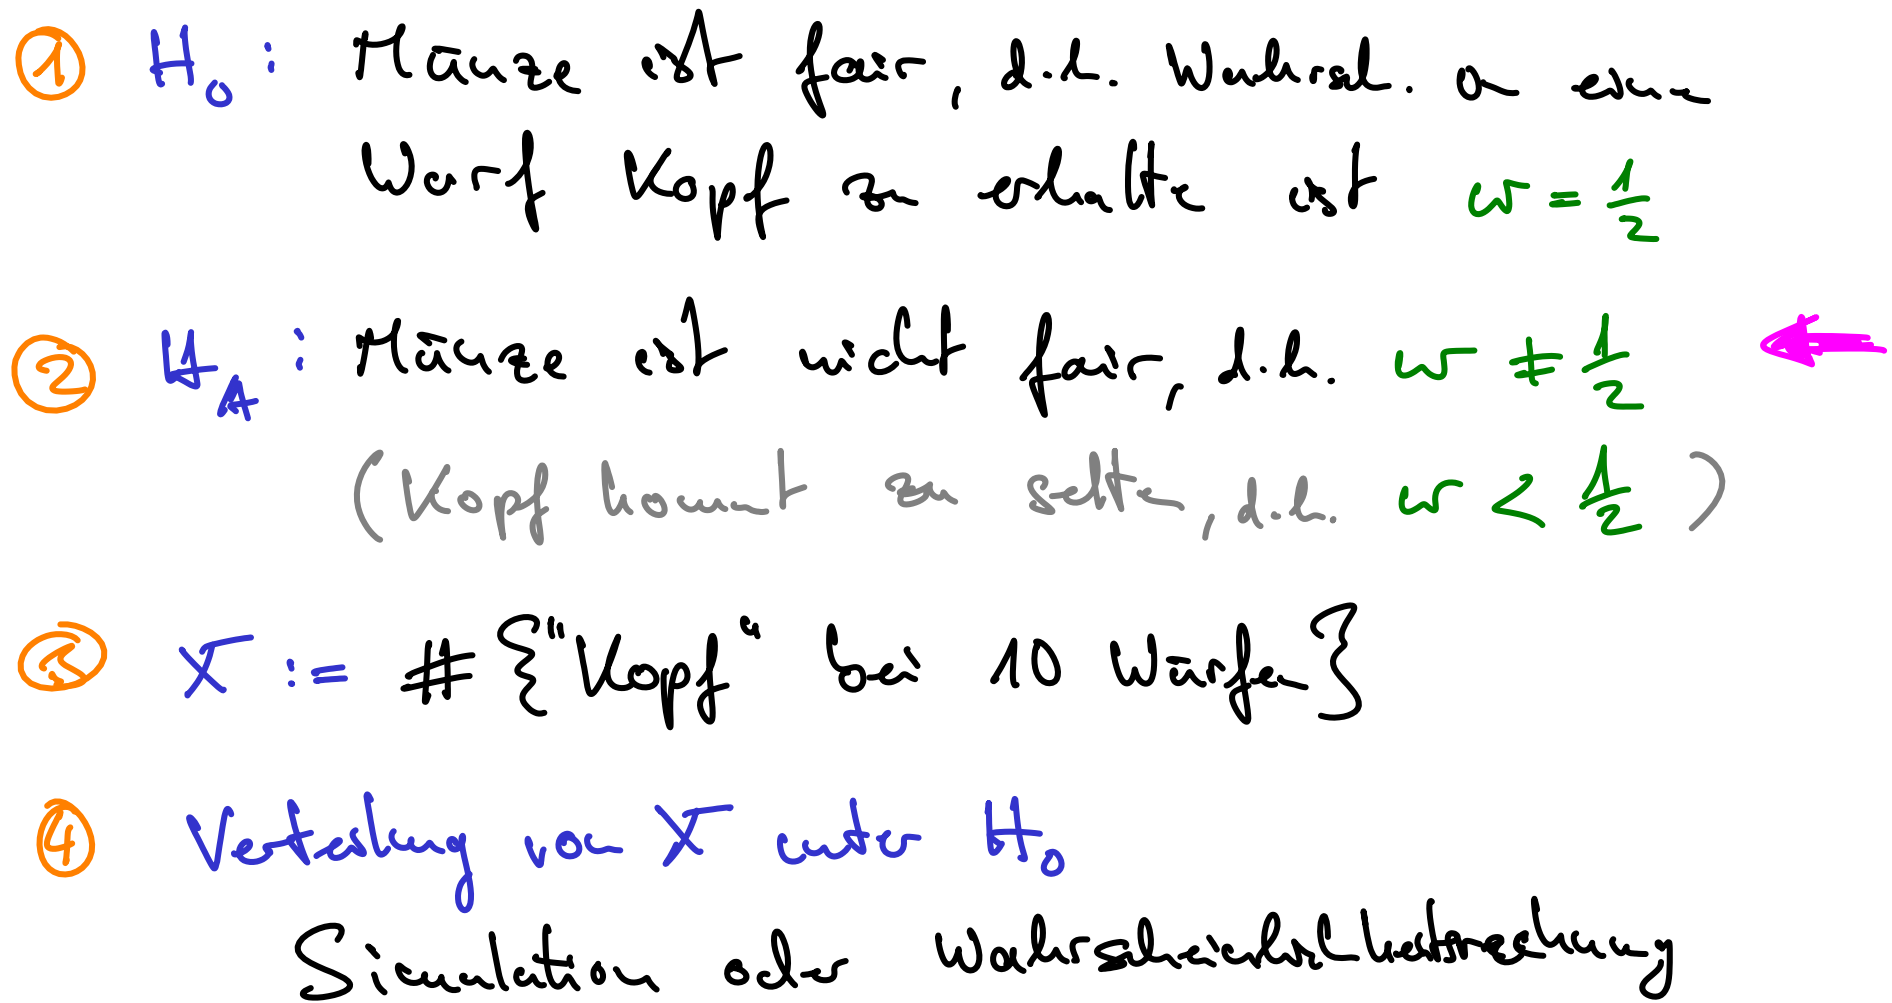 ① H₀ : Münze ist fair, d.h. Wahrsch. in einem
Wurf Kopf zu erhalten ist w = 1/2
② H_A : Münze ist nicht fair, d.h. w ≠ 1/2
(Kopf kommt zu selten, d.h. w < 1/2 )
③ X := # {"Kopf" bei 10 Würfen}
④ Verteilung von X unter H₀
Simulation oder Wahrscheinlichkeitsrechnung